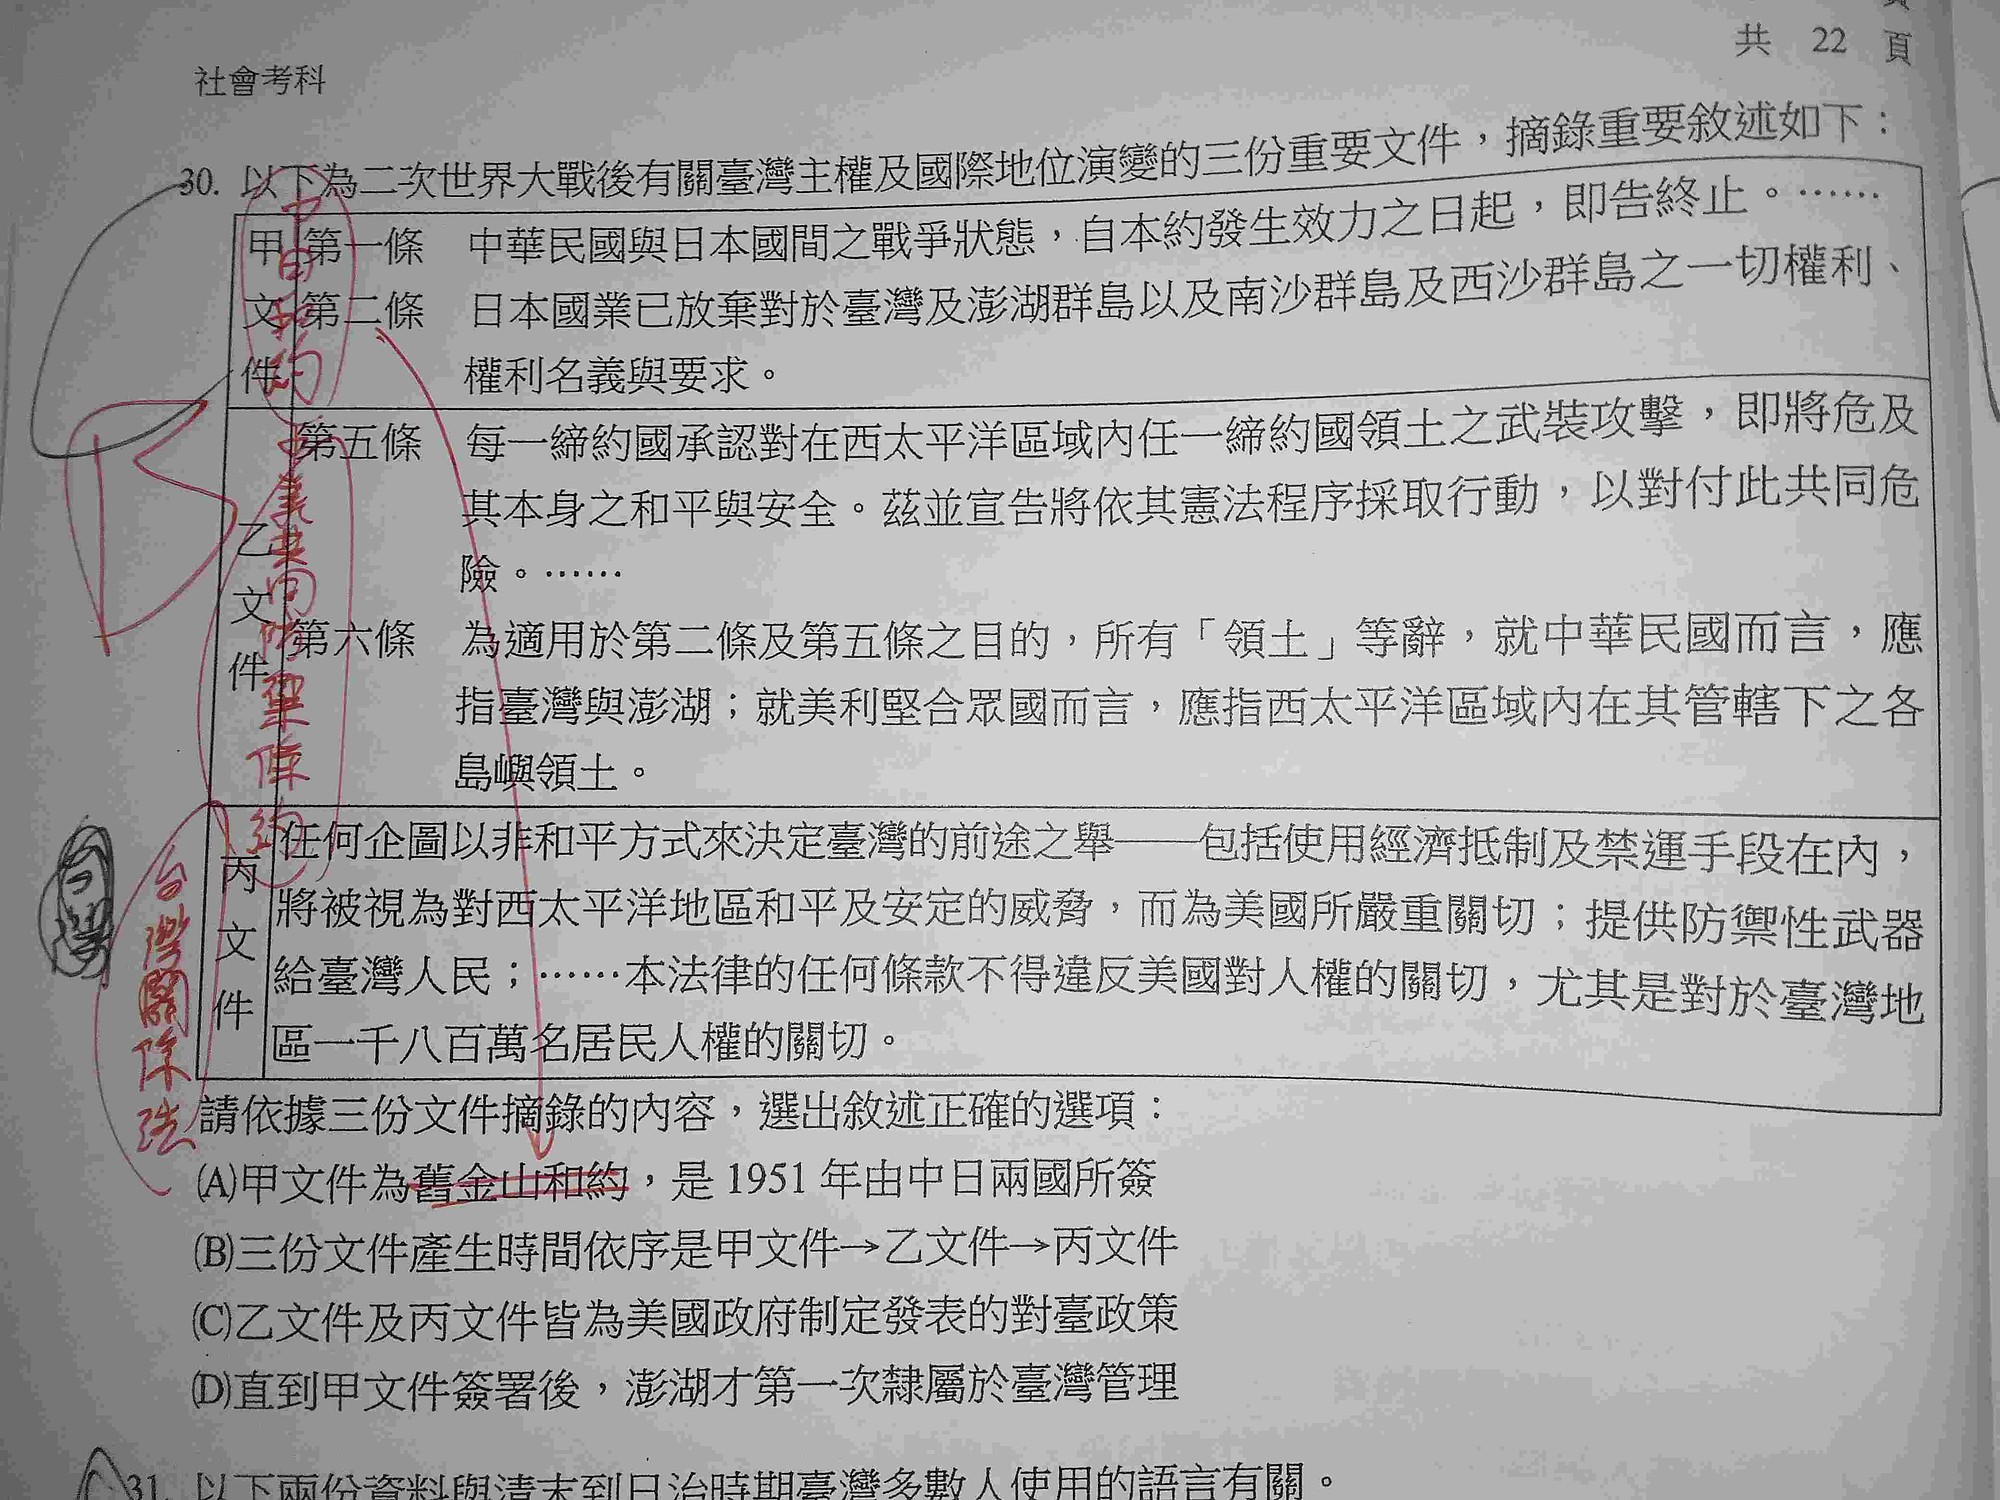 共 22 頁
社會考科
30. 以下為二次世界大戰後有關臺灣主權及國際地位演變的三份重要文件，摘錄重要敘述如下：
甲文件
第一條 中華民國與日本國間之戰爭狀態，自本約發生效力之日起，即告終止。……
第二條 日本國業已放棄對於臺灣及澎湖群島以及南沙群島及西沙群島之一切權利、
權利名義與要求。
中日和約
乙文件
第五條 每一締約國承認對在西太平洋區域內任一締約國領土之武裝攻擊，即將危及
其本身之和平與安全。茲並宣告將依其憲法程序採取行動，以對付此共同危
險。……
第六條 為適用於第二條及第五條之目的，所有「領土」等辭，就中華民國而言，應
指臺灣與澎湖；就美利堅合眾國而言，應指西太平洋區域內在其管轄下之各
島嶼領土。
中美共同防禦條約
B
丙文件
任何企圖以非和平方式來決定臺灣的前途之舉——包括使用經濟抵制及禁運手段在內，
將被視為對西太平洋地區和平及安定的威脅，而為美國所嚴重關切；提供防禦性武器
給臺灣人民；……本法律的任何條款不得違反美國對人權的關切，尤其是對於臺灣地
區一千八百萬名居民人權的關切。
台灣關係法
請依據三份文件摘錄的內容，選出敘述正確的選項：
(A)甲文件為舊金山和約，是 1951 年由中日兩國所簽
(B)三份文件產生時間依序是甲文件→乙文件→丙文件
(C)乙文件及丙文件皆為美國政府制定發表的對臺政策
(D)直到甲文件簽署後，澎湖才第一次隸屬於臺灣管理
31. 以下兩份資料與清末到日治時期臺灣多數人使用的語言有關。